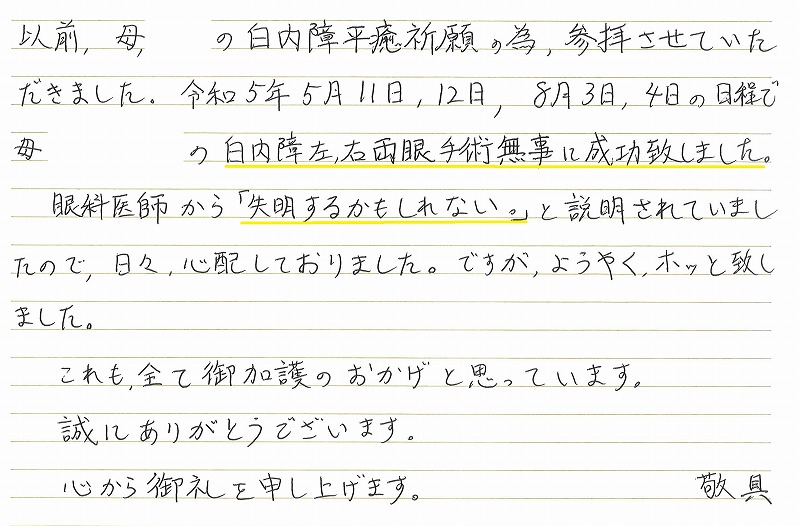 以前, 母, の白内障平癒祈願の為, 参拝させていた
だきました. 令和5年5月11日, 12日, 8月3日, 4日の日程で
母 の白内障左,右両眼手術無事に成功致しました。
眼科医師から「失明するかもしれない。」と説明されていまし
たので, 日々, 心配しておりました。ですが, ようやく, ホッと致し
ました。
これも, 全て御加護のおかげと思っています。
誠にありがとうございます。
心から御礼を申し上げます。 敬具